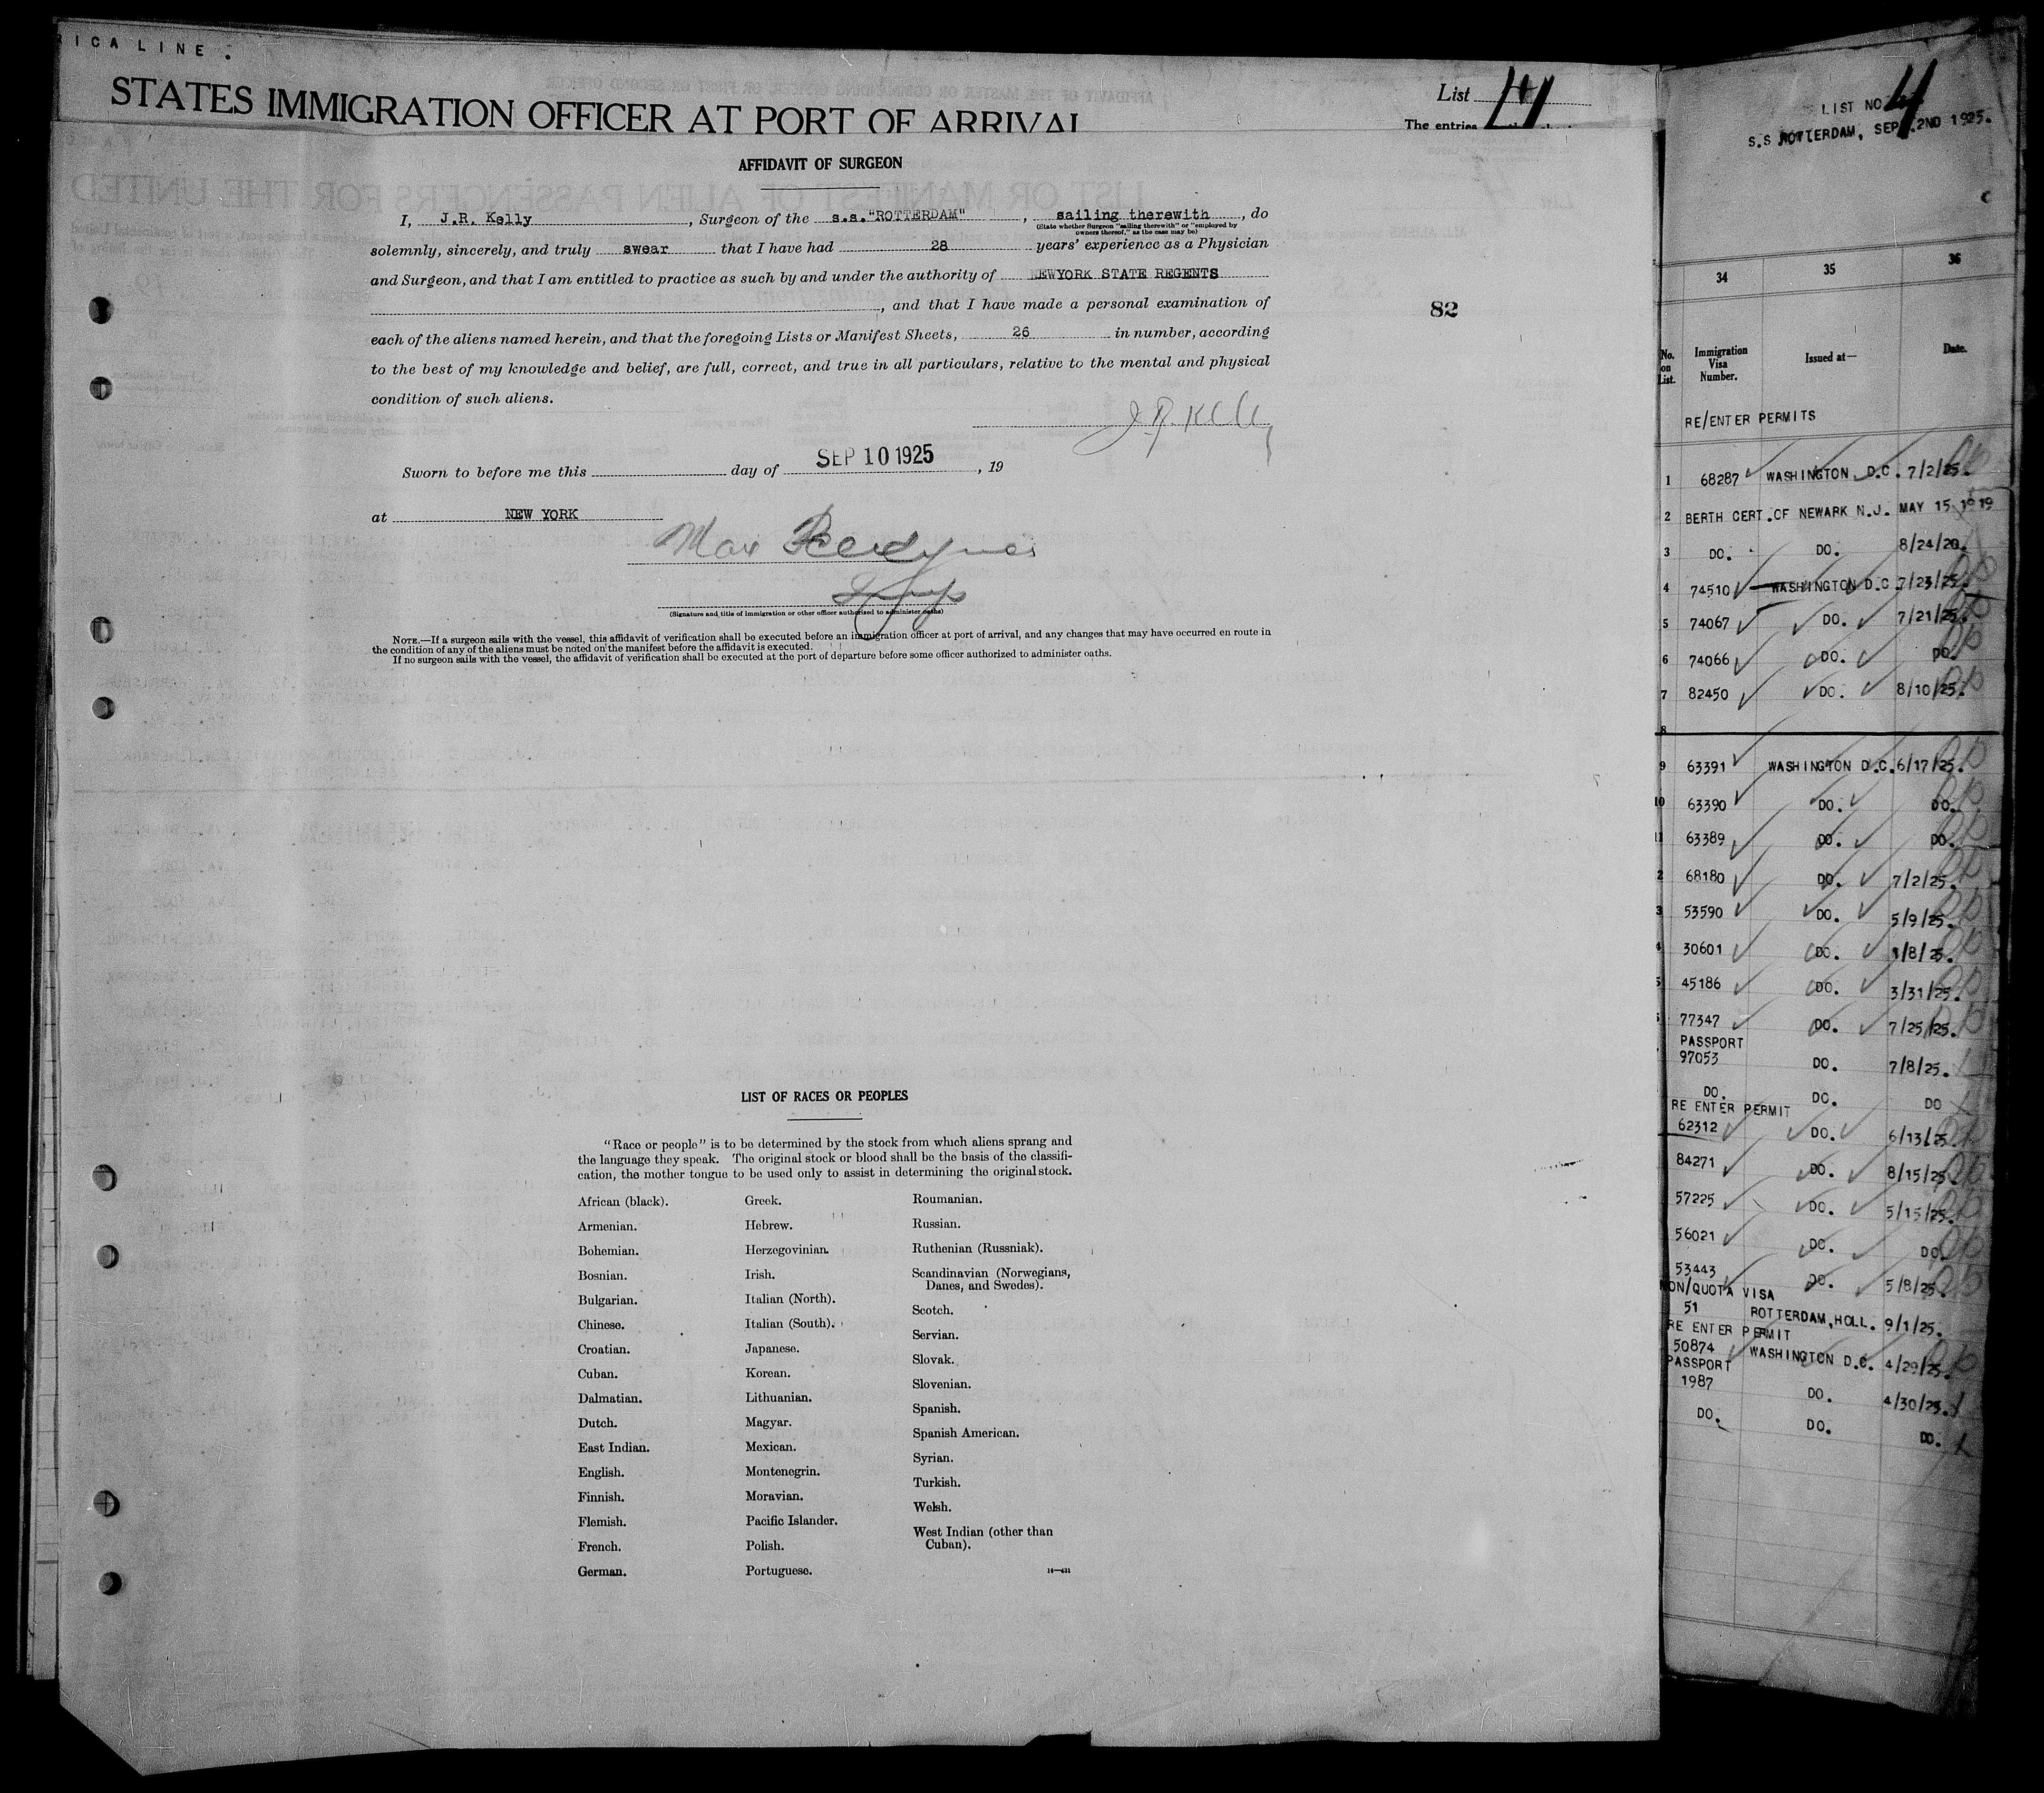 RICA LINE.
STATES IMMIGRATION OFFICER AT PORT OF ARRIVAL
List 4
The entries
AFFIDAVIT OF SURGEON
I, J.R. Kelly, Surgeon of the s.s. "ROTTERDAM", sailing therewith, do
(State whether Surgeon "sailing therewith" or "employed by
owners thereof," as the case may be)
solemnly, sincerely, and truly swear that I have had 28 years' experience as a Physician
and Surgeon, and that I am entitled to practice as such by and under the authority of NEWYORK STATE REGENTS
, and that I have made a personal examination of
each of the aliens named herein, and that the foregoing Lists or Manifest Sheets, 26 in number, according
to the best of my knowledge and belief, are full, correct, and true in all particulars, relative to the mental and physical
condition of such aliens.
J R Kelly
Sworn to before me this day of SEP 10 1925, 19
at NEW YORK
Max
(Signature and title of immigration or other officer authorized to administer oaths)
NOTE.—If a surgeon sails with the vessel, this affidavit of verification shall be executed before an immigration officer at port of arrival, and any changes that may have occurred en route in
the condition of any of the aliens must be noted on the manifest before the affidavit is executed.
If no surgeon sails with the vessel, the affidavit of verification shall be executed at the port of departure before some officer authorized to administer oaths.
82
LIST OF RACES OR PEOPLES
"Race or people" is to be determined by the stock from which aliens sprang and
the language they speak. The original stock or blood shall be the basis of the classifi-
cation, the mother tongue to be used only to assist in determining the original stock.
African (black).
Armenian.
Bohemian.
Bosnian.
Bulgarian.
Chinese.
Croatian.
Cuban.
Dalmatian.
Dutch.
East Indian.
English.
Finnish.
Flemish.
French.
German.
Greek.
Hebrew.
Herzegovinian.
Irish.
Italian (North).
Italian (South).
Japanese.
Korean.
Lithuanian.
Magyar.
Mexican.
Montenegrin.
Moravian.
Pacific Islander.
Polish.
Portuguese.
Roumanian.
Russian.
Ruthenian (Russniak).
Scandinavian (Norwegians,
Danes, and Swedes).
Scotch.
Servian.
Slovak.
Slovenian.
Spanish.
Spanish American.
Syrian.
Turkish.
Welsh.
West Indian (other than
Cuban).
14—431
LIST NO 4
S.S ROTTERDAM, SEPT. 2ND 1925.
34 35 36
No. on List. Immigration Visa Number. Issued at— Date.
RE/ENTER PERMITS
1 68287 WASHINGTON D.C. 7/2/25.
2 BERTH CERT.OF NEWARK N.J. MAY 15 1919
3 DO. DO. 8/24/20.
4 74510 WASHINGTON D.C. 7/23/25.
5 74067 DO. 7/21/25.
6 74066 DO. DO.
7 82450 DO. 8/10/25.
8
9 63391 WASHINGTON D.C. 6/17/25.
10 63390 DO. DO.
11 63389 DO. DO.
2 68180 DO. 7/2/25.
3 53590 DO. 5/9/25.
4 30601 DO. 1/8/25.
5 45186 DO. 3/31/25.
77347 DO. 7/25/25.
PASSPORT
97053 DO. 7/8/25.
DO. DO. DO
RE ENTER PERMIT
62312 DO. 6/13/25.
84271 DO. 8/15/25.
57225 DO. 5/15/25.
56021 DO. DO.
53443 DO. 5/8/25.
NON/QUOTA VISA
51 ROTTERDAM,HOLL. 9/1/25.
RE ENTER PERMIT
50874 WASHINGTON D.C. 4/29/25.
PASSPORT
1987 DO. 4/30/25.
DO. DO. DO.